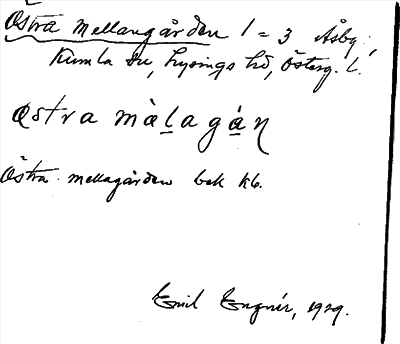 Östra Mellangården 1 = 3 Åsby.,
Kumla sn, Lysings hd, Österg. l.
østra màl̲agá̲ɳ
Östra mellagården bek kb.
Emil Engnér, 1929.